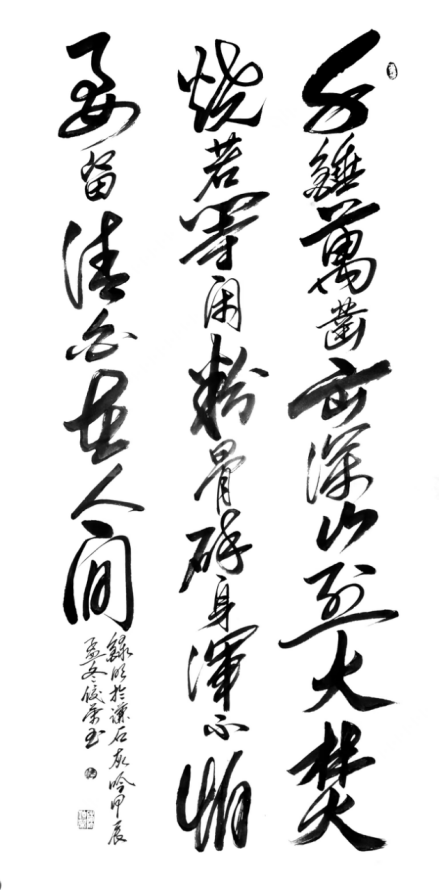 千錘萬鑿出深山烈火焚
燒若等閑粉骨碎身渾不怕
要留清白在人间
錄明於謙石灰吟甲辰
孟冬書